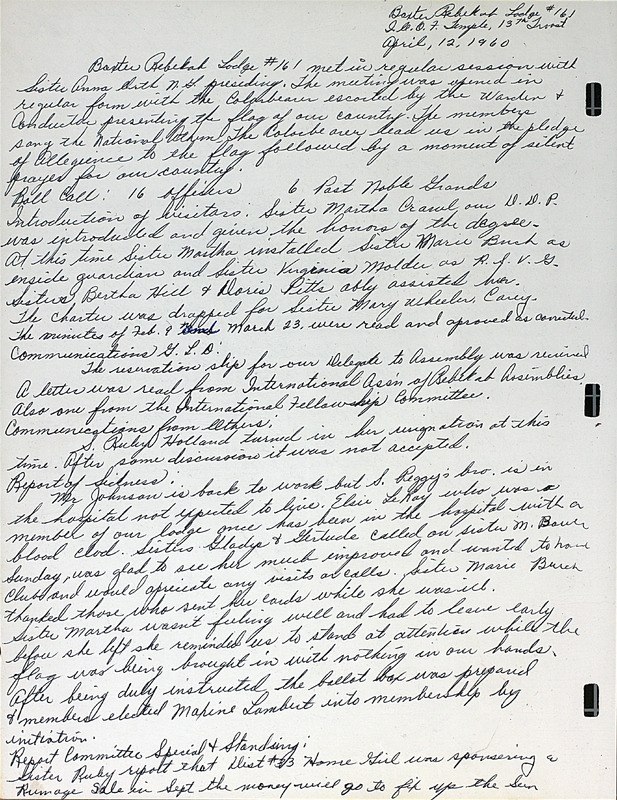 Baxter Rebekah Lodge #161
I.O.O.F. Temple, 13th & Troost
April, 12, 1960
Baxter Rebekah Lodge #161 met in regular session with
Sister Anna Orth N.G. presiding. The meeting was opened in
regular form with the Colorbearer escorted by the Warden &
Conductor presenting the flag of our country. The members
sang the National Anthem. The Colorbearer lead us in the pledge
of Allegence to the flag followed by a moment of silent
prayer for our country.
Roll Call: 16 officers 6 Past Noble Grands
Introduction of visitors: Sister Martha Crawl our D.D.P.
was introduced and given the honors of the degree.
At this time Sister Martha installed Sister Marie Burch as
enside guardian and Sister Virginia Molder as R.S.V.G.
Sisters Bertha Hill & Doris Pitts ably assisted her.
The charter was drapped for Sister Mary Wheeler, Carey.
The minutes of Feb. 9 March 23 were read and aproved as corrected.
Communications G.L.D:
The reservation slip for our Delegate to Assembly was recived
A letter was read from International Ass'n of Rebekah Assemblies
Also one from the International Fellowship Committee.
Communications from others:
S. Ruby Holland turned in her resignation at this
time. After some discussion it was not accepted.
Report of Sickness:
Mr. Johnson is back to work but S. Peggy's bro. is in
the hospital not expected to live. Elsie LeRoy who was a
member of our lodge once has been in the hospital with a
blood clod. Sisters Gladys & Gertude called on sister M. Bauer
Sunday, was glad to see her much improved and wanted to have
Club and would apriciate any visits or calls. Sister Marie Burch
thanked those who sent her cards while she was ill.
Sister Martha wasn't feeling well and had to leave early
before she left she reminded us to stand at attention while the
flag was being brought in with nothing in our hands.
After being duly instructed the ballot box was prepared
& members elected Maxine Lambert into membership by
initiation.
Report Committee Special & Standing:
Sister Ruby report that Dist #33 Home Girl was sponsering a
Rumage Sale in Sept the money will go to fix up the Sun